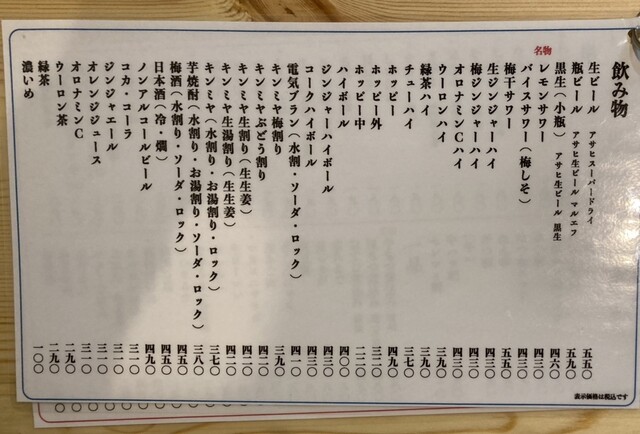 飲み物
生ビール アサヒスーパードライ 五五〇
瓶ビール アサヒ生ビール マルエフ 五九〇
黒生(小瓶) アサヒ生ビール 黒生 四六〇
名物 レモンサワー 四三〇
バイスサワー(梅しそ) 四三〇
梅干サワー 五五〇
生ジンジャーハイ 四三〇
梅ジンジャーハイ 四三〇
オロナミンCハイ 四三〇
ウーロンハイ 三九〇
緑茶ハイ 三九〇
チューハイ 三七〇
ホッピー 四九〇
ホッピー外 三二〇
ホッピー中 一二〇
ハイボール 四〇〇
ジンジャーハイボール 四三〇
コークハイボール 四三〇
電気ブラン(水割・ソーダ・ロック) 四一〇
キンミヤ梅割り 三九〇
キンミヤぶどう割り 四二〇
キンミヤ生割り(生生姜) 四二〇
キンミヤ生湯割り(生生姜) 四二〇
キンミヤ(水割り・お湯割り・ロック) 三七〇
芋焼酎(水割り・お湯割り・ソーダ・ロック) 三八〇
梅酒(水割り・ソーダ・ロック) 四五〇
日本酒(冷・燗) 四五〇
ノンアルコールビール 四九〇
コカ・コーラ 三一〇
ジンジャエール 三一〇
オレンジジュース 三一〇
オロナミンC 三一〇
ウーロン茶 二九〇
緑茶 二九〇
濃いめ 一〇〇
表示価格は税込です